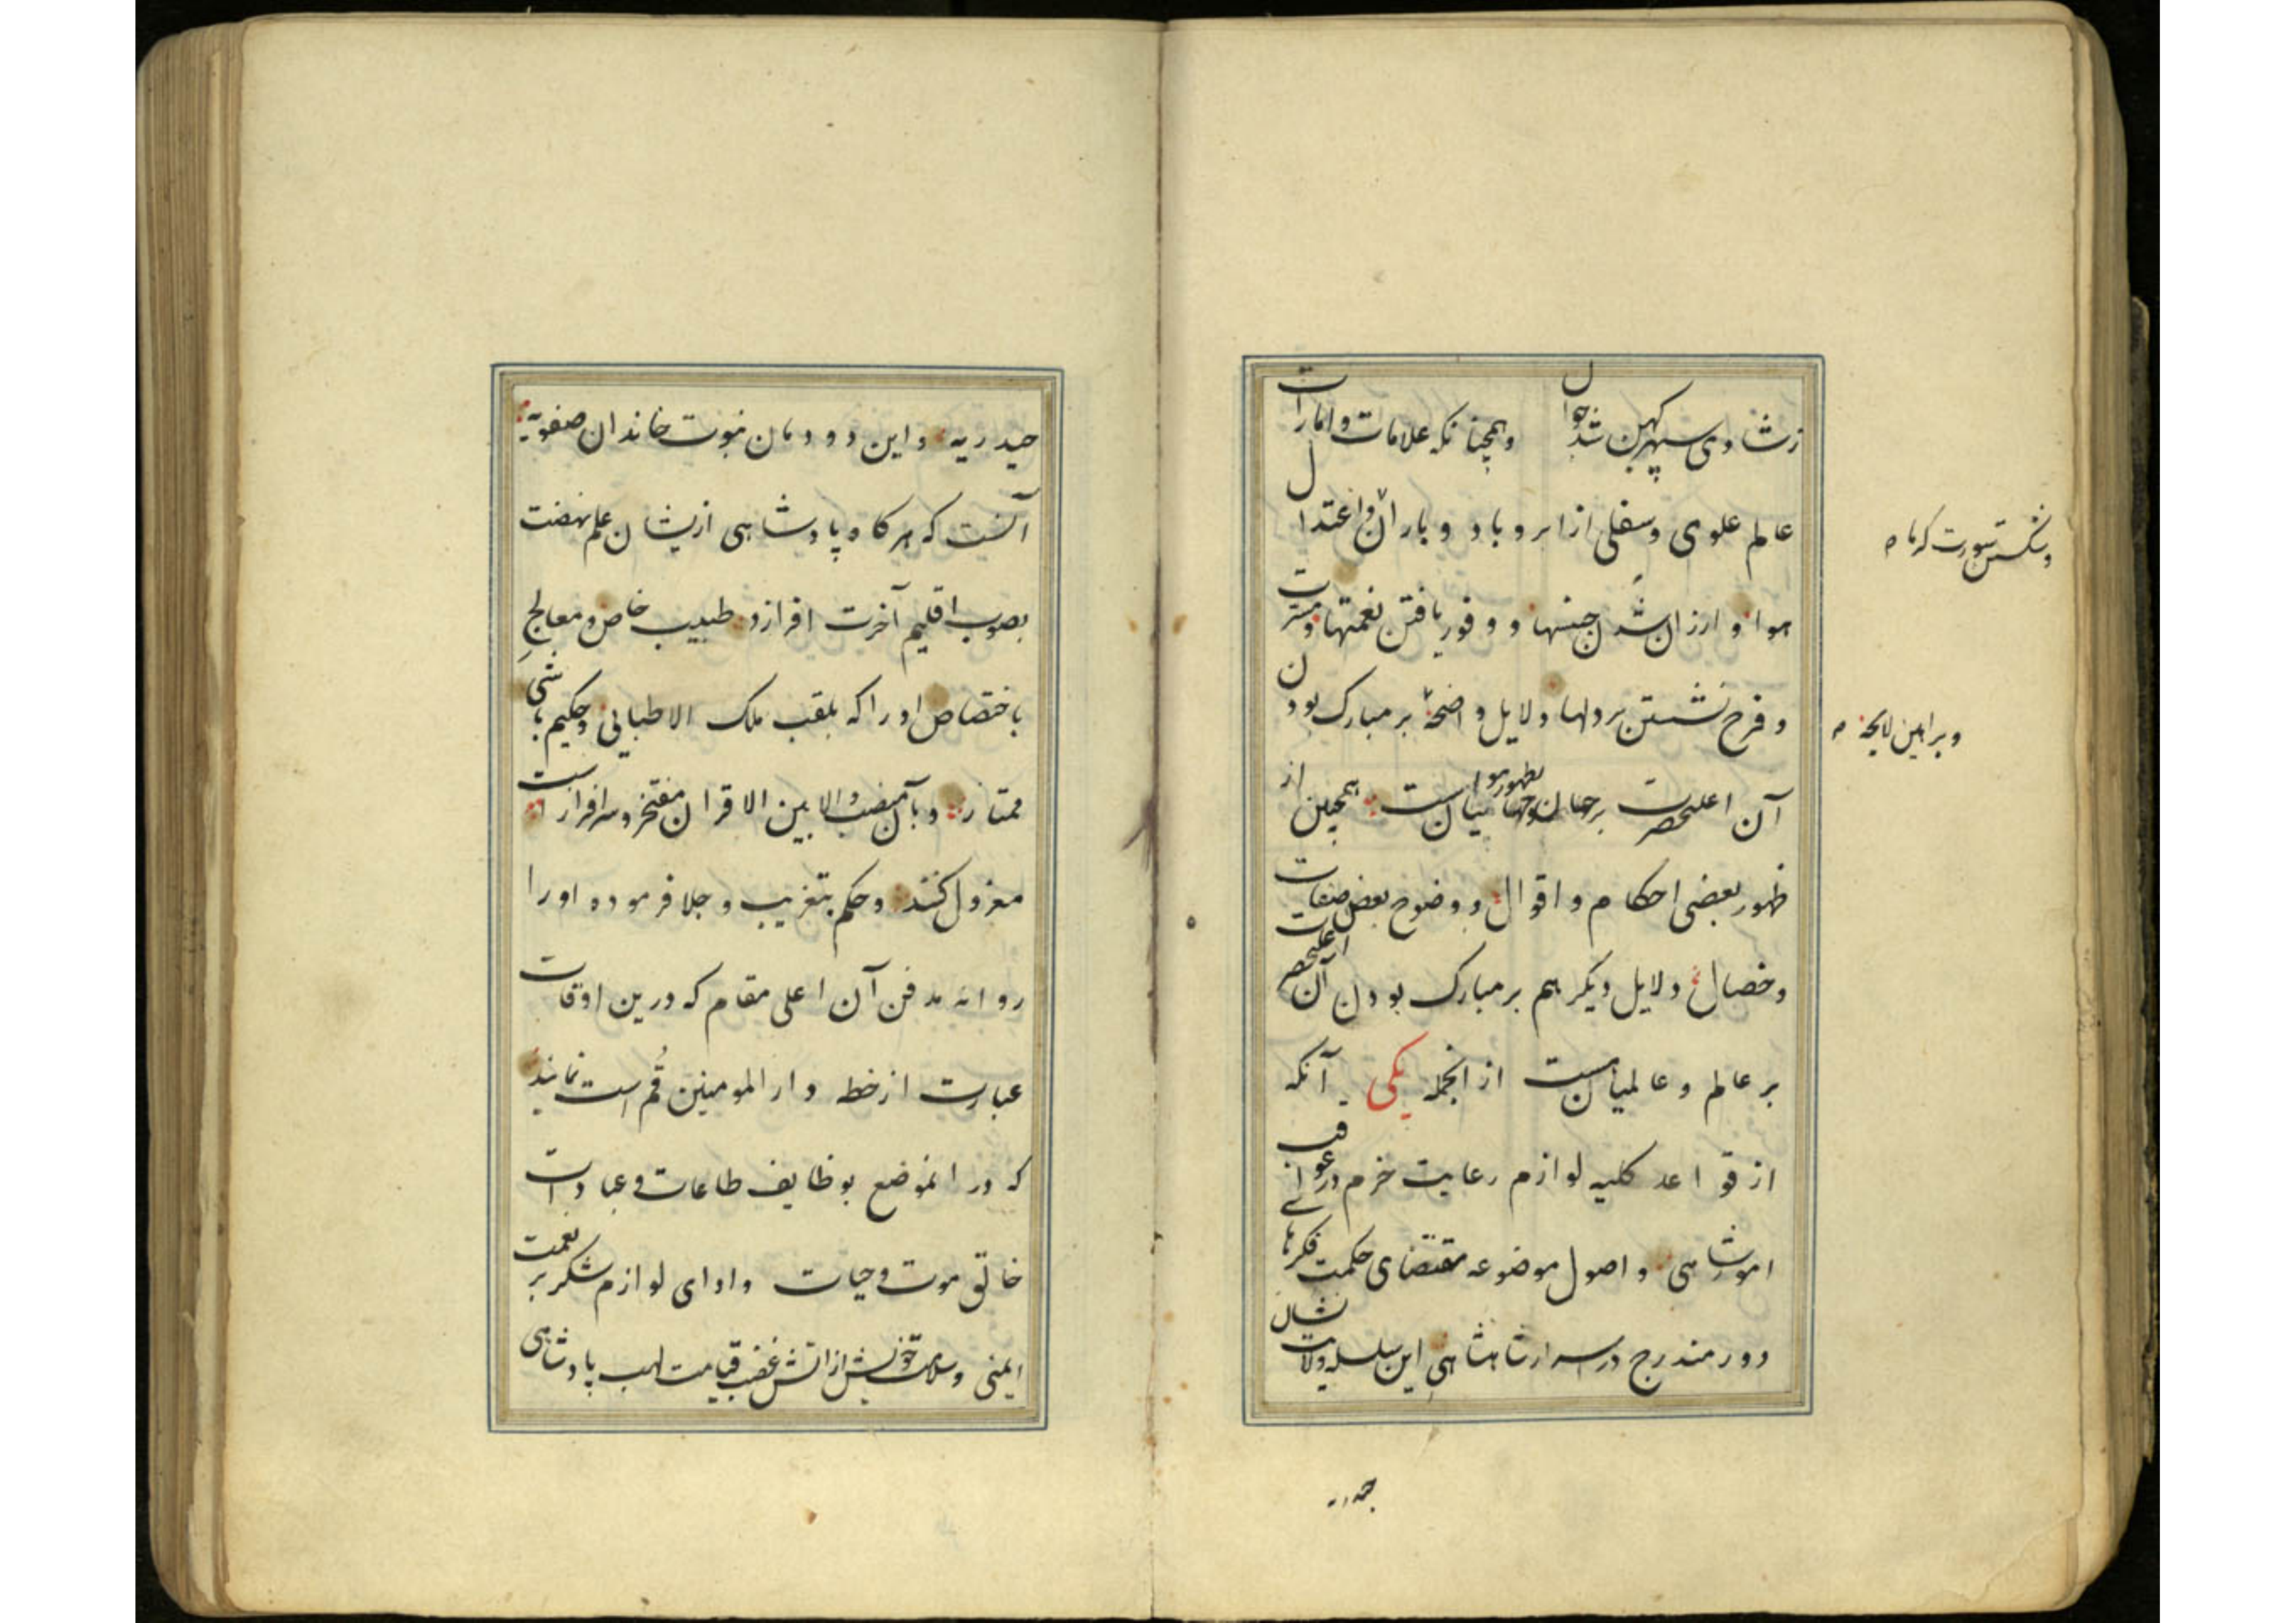 ز شادی سپهر کهن شد جوان وهمچنانکه علامات و امارات
عالم علوی و سفلی از ابر و باد و باران و اعتدال
هوا و ارزان شدن جنسها و وفور یافتن نعمتها و مسرت
و فرح نشستن بر دلها دلایل واضحهٔ بر مبارک بودن
آن اعلیحضرت بر جهان و جهانیانست همچنین از
ظهور بعضی احکام و اقوال و وضوح بعض صفات
و خصال دلایل دیگر هم بر مبارک بودن آن اعلیحضرت
بر عالم و عالمیان هست از انجمله یکی آنکه
از قواعد کلیه لوازم رعایت حزم در عواقب
امور شاهی و اصول موضوعه مقتضای حکمت فکرهای
دور مندرج در اسرار شاهنشاهی این سلسله ولایت نشان
و شکستن سورت گرما
و براهین لایحه
حیدریه
حیدریه و این دودمان نبوت خاندان صفویه
آنست که هر گاه پادشاهی ازیشان علم نهضت
بصوب اقلیم آخرت افرازد طبیب خاص و معالج
باختصاص او را که بلقب ملک الاطبائی و حکیم باشی
ممتاز و بآن منصب والا بین الاقران مفتخر و سرافراز است
معزول کنند و حکم بتغریب و جلا فرموده او را
روانه مدفن آن اعلی مقام که درین اوقات
عبارت از خطه دار المومنین قُم است نمایند
که در انموضع بوظایف طاعات و عبادات
خالق موت و حیات و ادای لوازم شکر بر نعمت
ایمنی و سلامت خویش از اتش غضب قیامت لهب پادشاهی